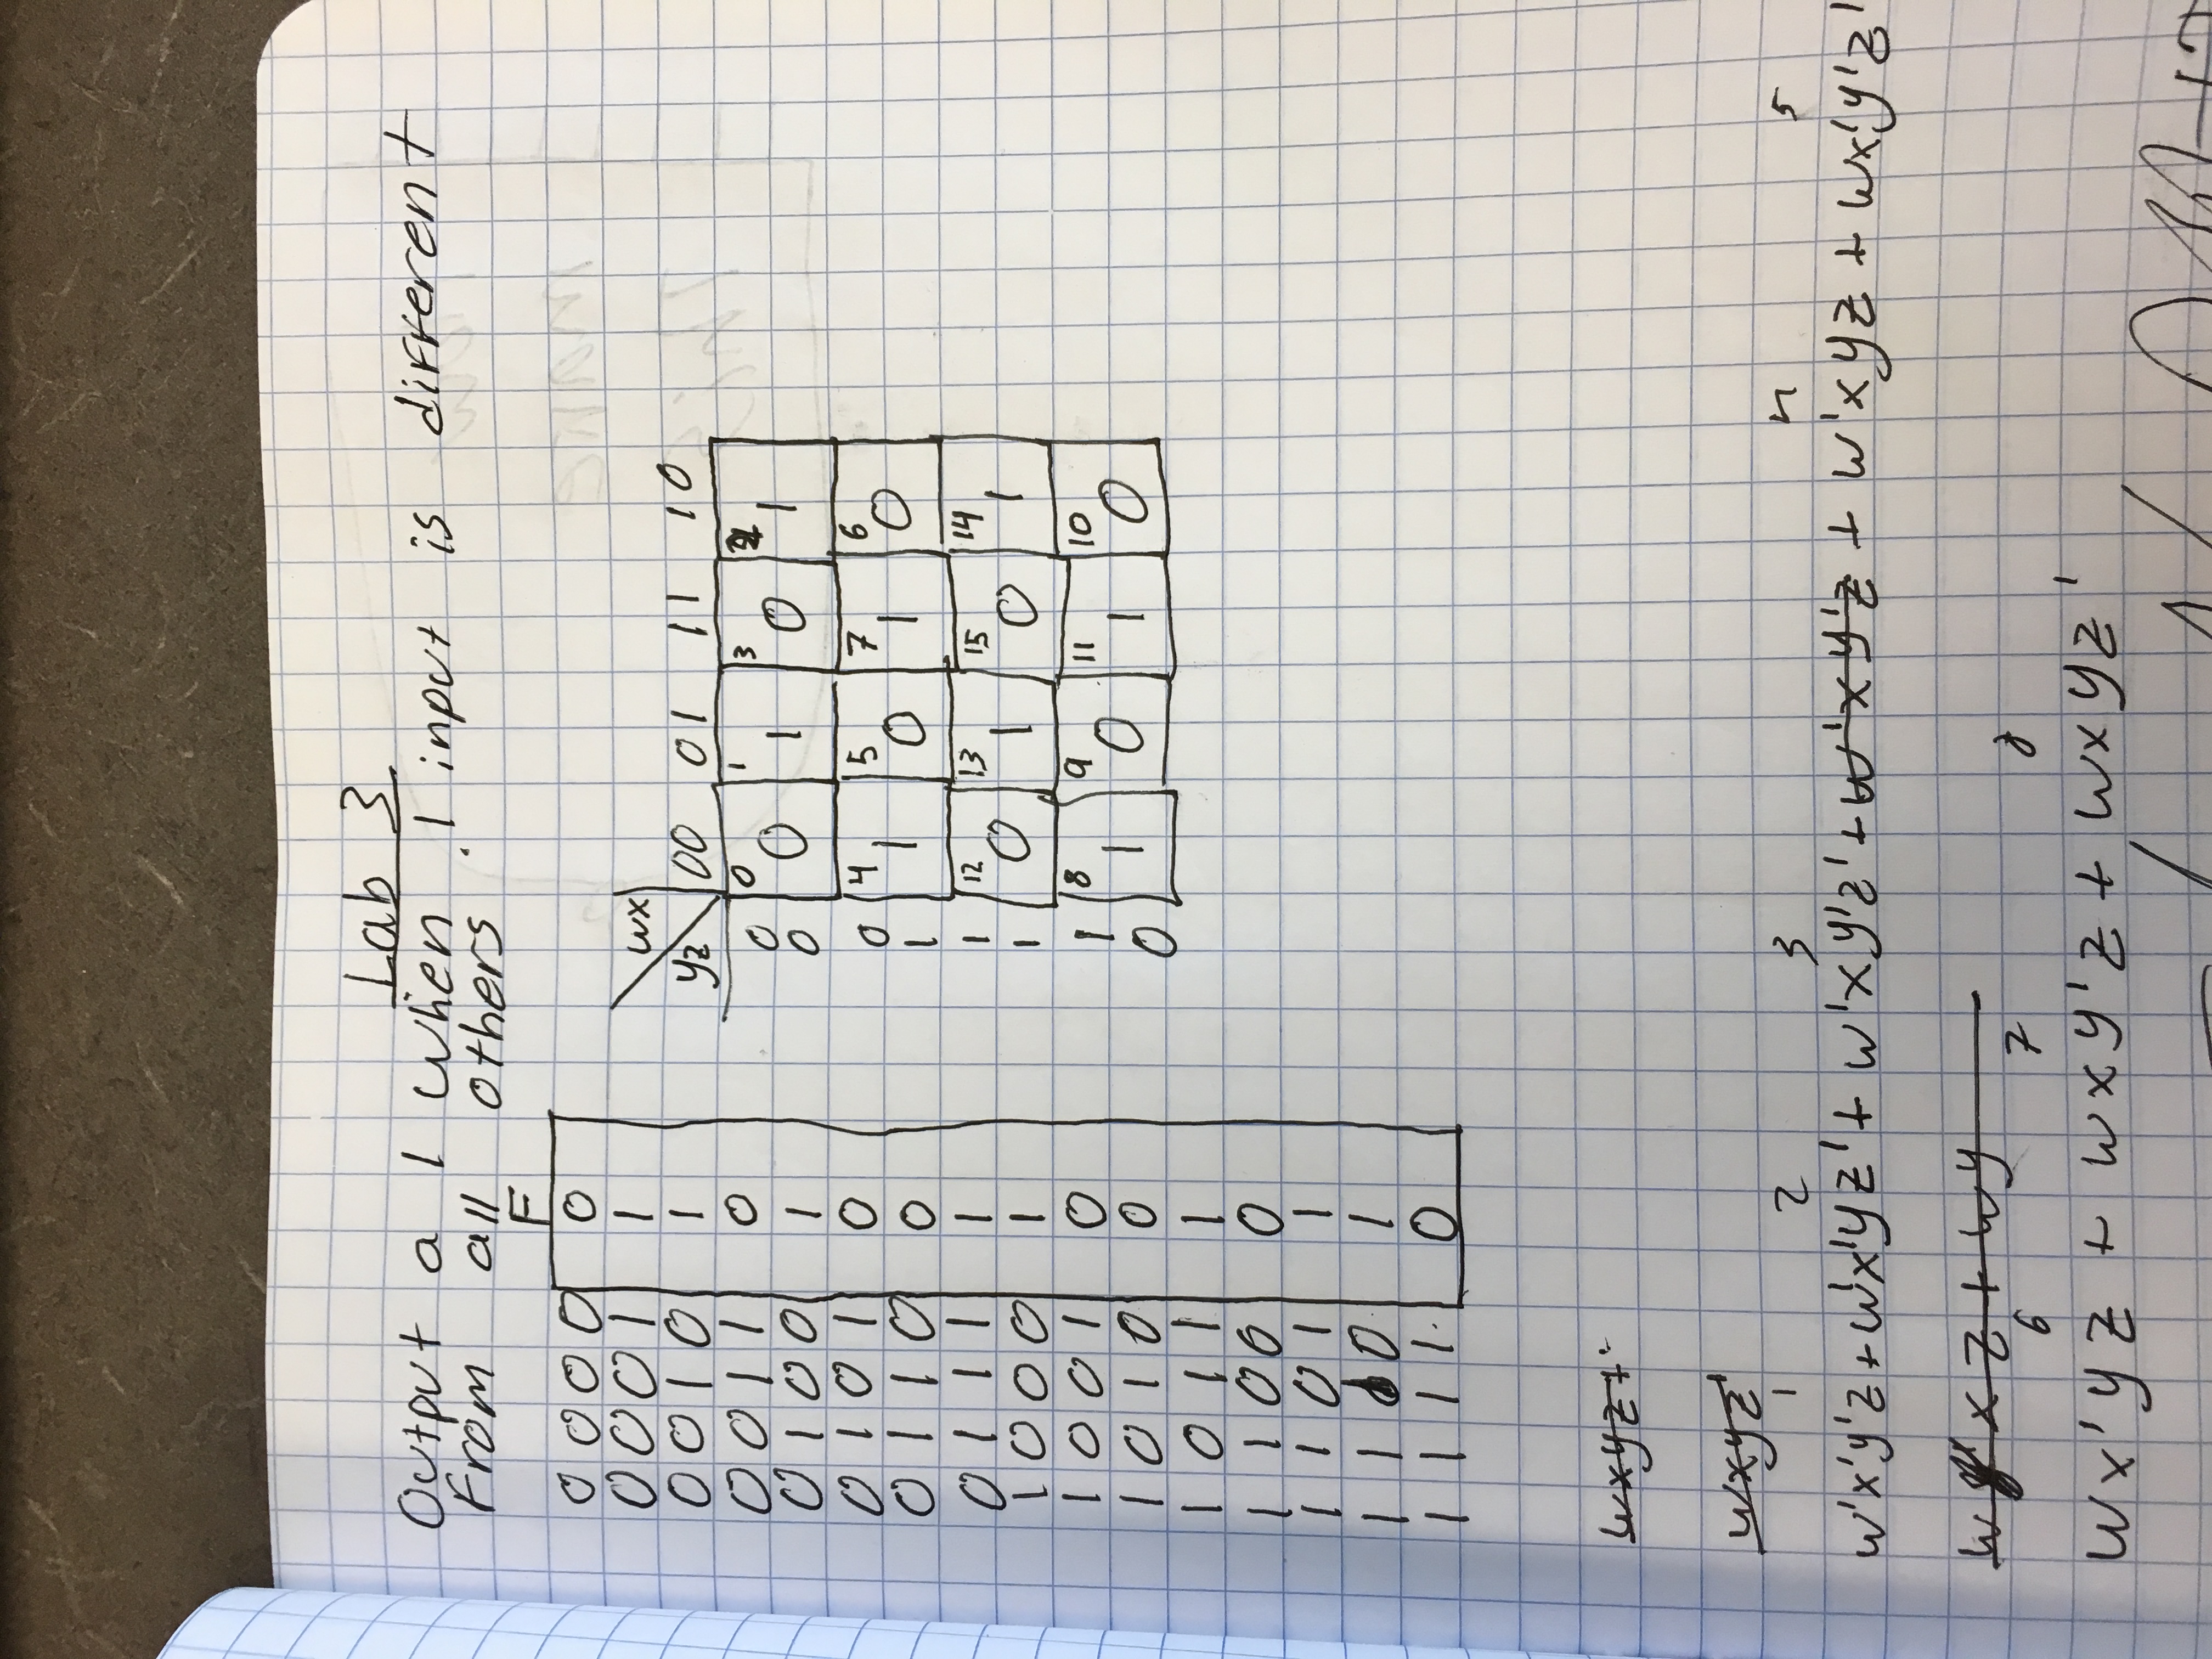 Lab 3
Output a 1 when 1 input is different
from all others.
F
0 0 0 0 0
0 0 0 1 1
0 0 1 0 1
0 0 1 1 0
0 1 0 0 1
0 1 0 1 0
0 1 1 0 0
0 1 1 1 1
1 0 0 0 1
1 0 0 1 0
1 0 1 0 0
1 0 1 1 1
1 1 0 0 0
1 1 0 1 1
1 1 1 0 1
1 1 1 1 0
wx
yz 00 01 11 10
0 1 3 2
00 0 1 0 1
4 5 7 6
01 1 0 1 0
12 13 15 14
11 0 1 0 1
8 9 11 10
10 1 0 1 0
wxyz+
wxyz'
1 2 3 4 5
w'x'y'z + w'x'yz' + w'xy'z' + w'xy'z + w'xyz + wx'y'z'
w xz + wy
6 7 8
wx'yz + wxy'z + wxyz'